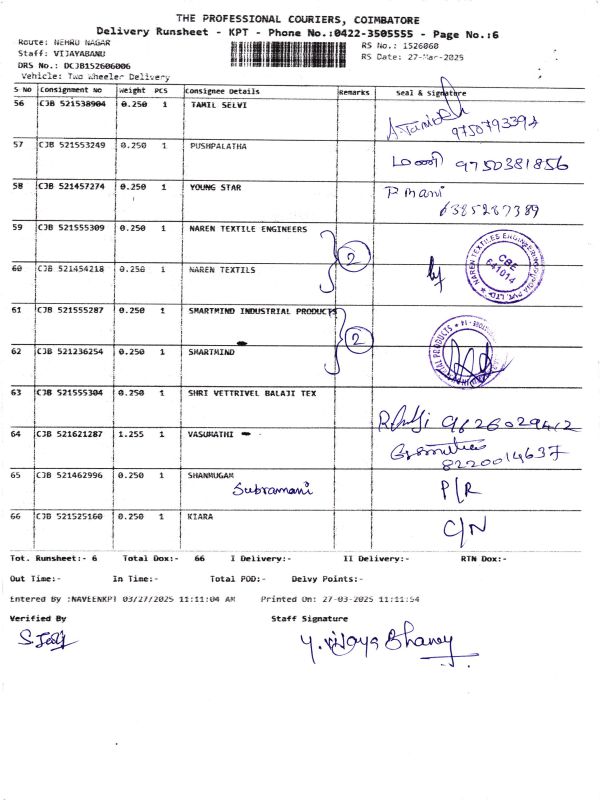 THE PROFESSIONAL COURIERS, COIMBATORE
Delivery Runsheet - KPT - Phone No.:0422-3505555 - Page No.:6
Route: NEHRU NAGAR RS No.: 1526060
Staff: VIJAYABANU RS Date: 27-Mar-2025
DRS No.: DCJB152606006
Vehicle: Two Wheeler Delivery
S No Consignment No Weight PCS Consignee Details Remarks Seal & Signature
56 CJB 521538904 0.250 1 TAMIL SELVI
9750793394
57 CJB 521553249 0.250 1 PUSHPALATHA மணி 9750381856
58 CJB 521457274 0.250 1 YOUNG STAR P mani
6385287389
59 CJB 521555309 0.250 1 NAREN TEXTILE ENGINEERS
2
60 CJB 521454218 0.250 1 NAREN TEXTILS
CBE
641014
61 CJB 521555287 0.250 1 SMARTMIND INDUSTRIAL PRODUCTS
2
62 CJB 521236254 0.250 1 SMARTMIND
63 CJB 521555304 0.250 1 SHRI VETTRIVEL BALAJI TEX
9626029412
64 CJB 521621287 1.255 1 VASUMATHI
8220014637
65 CJB 521462996 0.250 1 SHANMUGAM P/R
Subramani
66 CJB 521525160 0.250 1 KIARA C/N
Tot. Runsheet:- 6 Total Dox:- 66 I Delivery:- II Delivery:- RTN Dox:-
Out Time:- In Time:- Total POD:- Delvy Points:-
Entered By :NAVEENKPT 03/27/2025 11:11:04 AM Printed On: 27-03-2025 11:11:54
Verified By Staff Signature
Y. Vijaya Bhanu